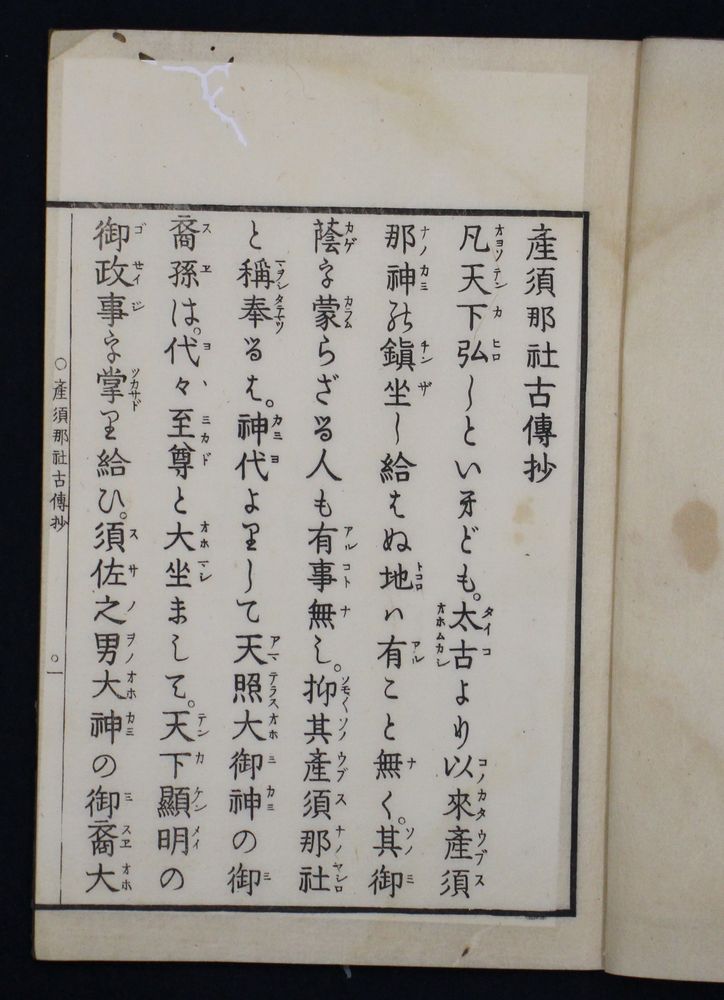 産須那社古傳抄
凡天下弘しといへども。太古より以來産須
那神の鎮坐し給はぬ地ハ有こと無く。其御
蔭を蒙らざる人も有事無し。抑其産須那社
と稱奉るは。神代よりして天照大御神の御
裔孫は。代々至尊と大坐ましまして。天下顯明の
御政事を掌り給ひ。須佐之男大神の御裔大
○産須那社古傳抄
○一